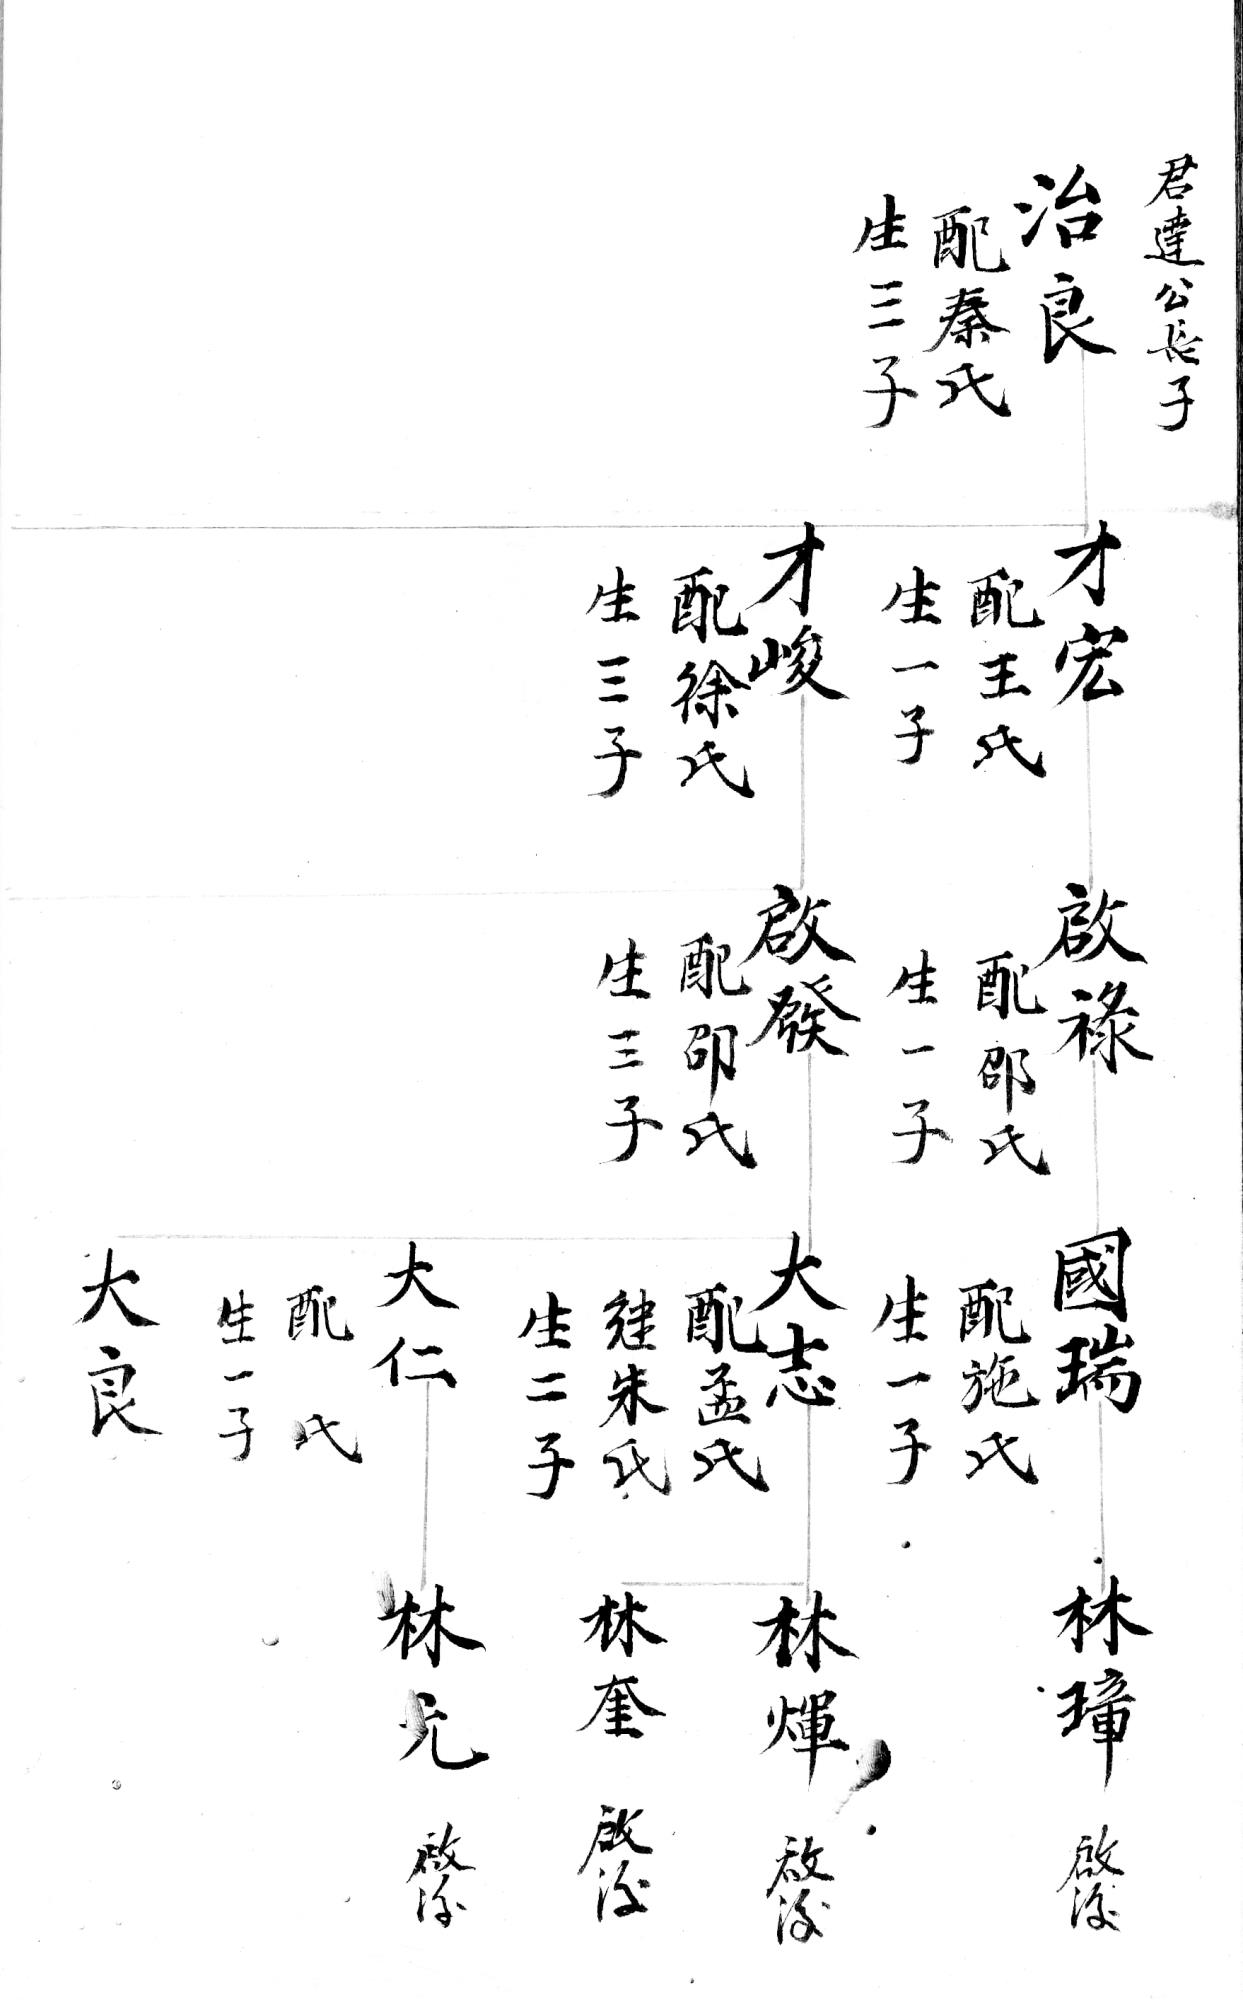 君達公長子
治良
配秦氏
生三子
才宏
配王氏
生一子
才峻
配徐氏
生三子
啟祿
配邵氏
生一子
啟發
配邵氏
生三子
國瑞
配施氏
生一子
大志
配孟氏
継朱氏
生二子
大仁
配 氏
生一子
大良
林璋
啟後
林煇
啟後
林奎
啟後
林允
啟後